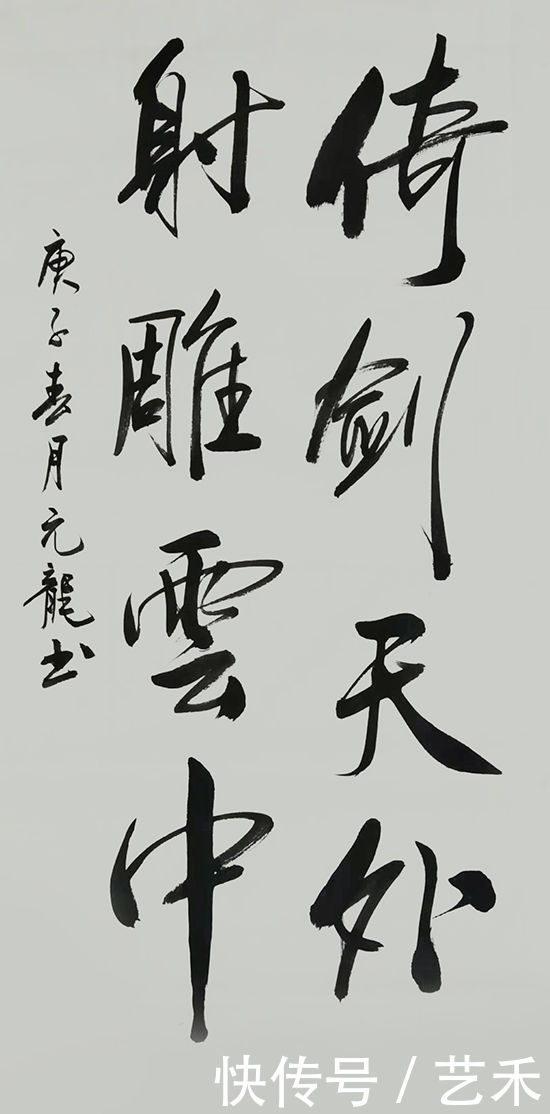 倚剑天外
射雕雲中
庚子春月元龍书
快传号/艺禾